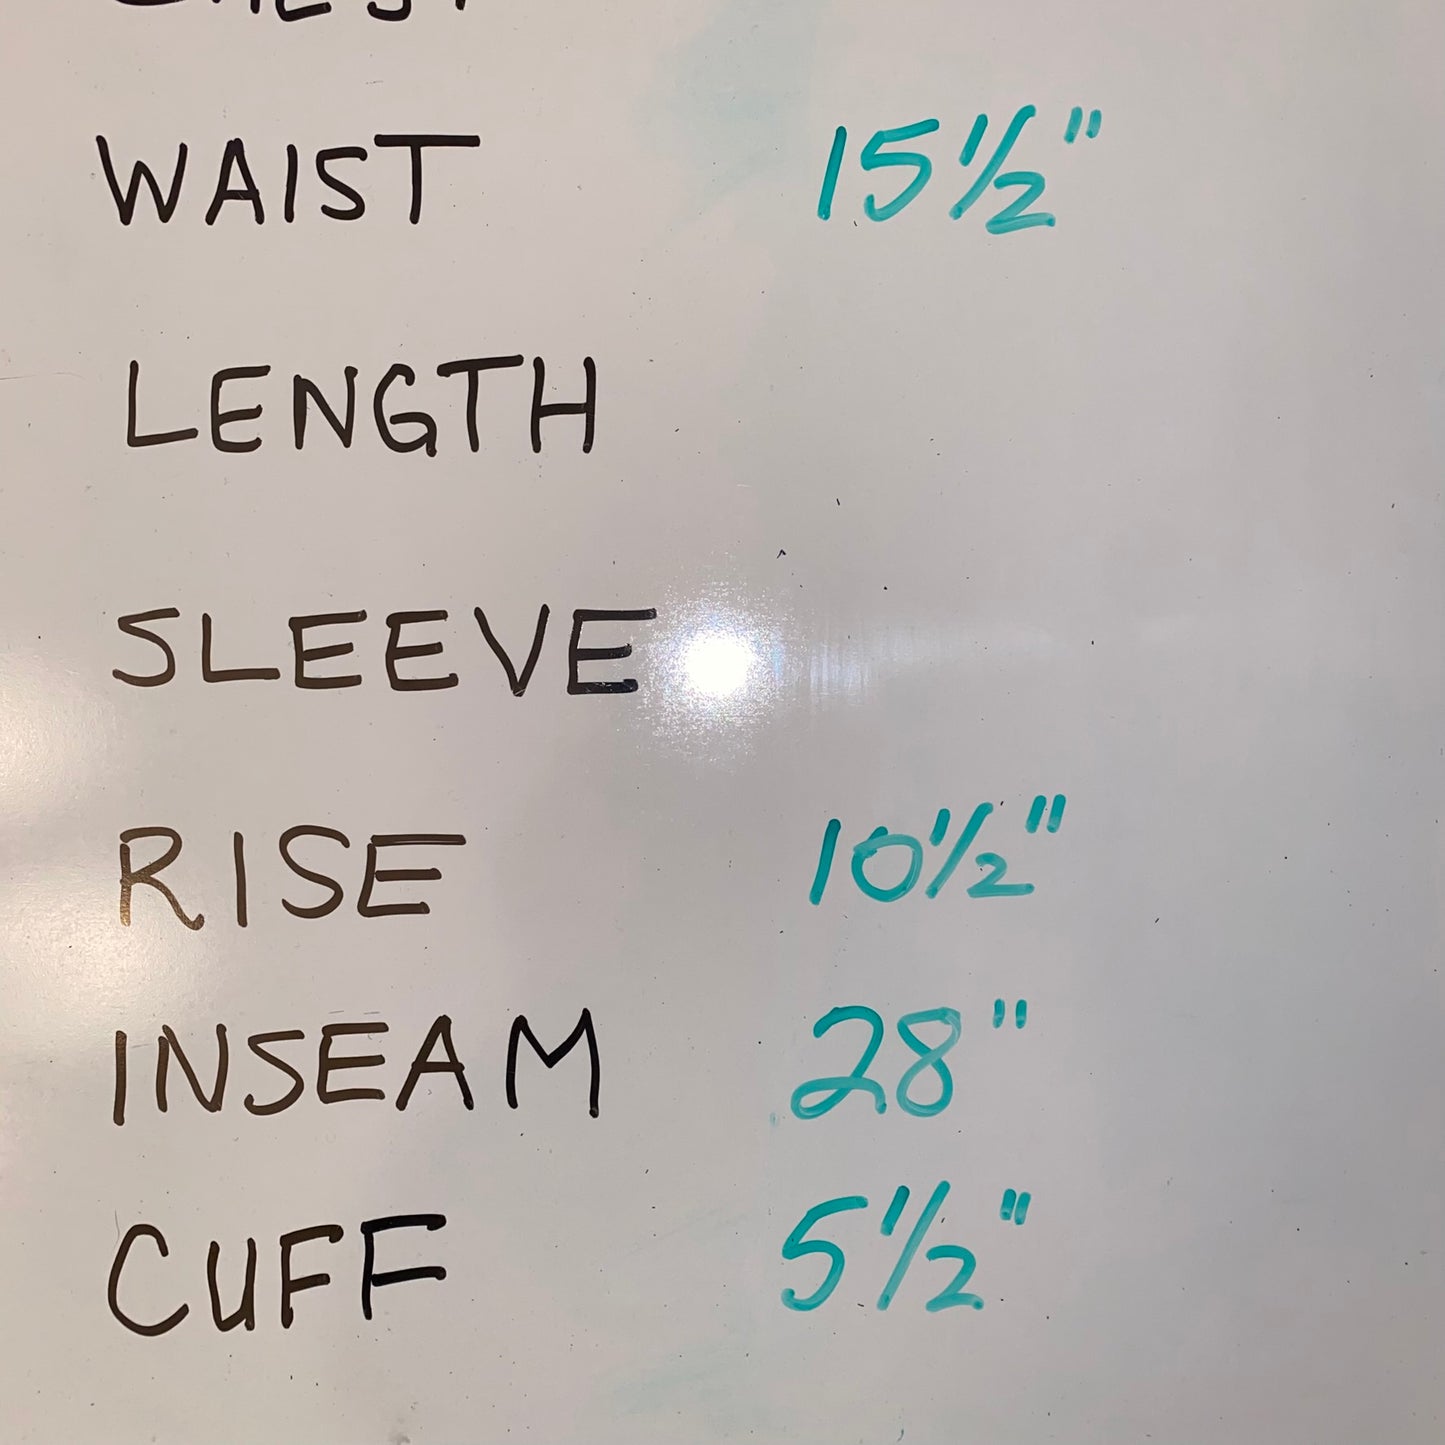 WAIST 15 1/2"
LENGTH
SLEEVE
RISE 10 1/2"
INSEAM 28"
CUFF 5 1/2"